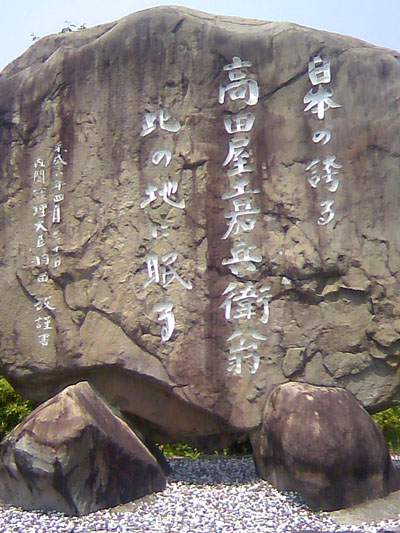 日本の誇る
高田屋嘉兵衛翁
此の地に眠る
平成六年四月三十日
内閣総理大臣 羽田 孜 謹書